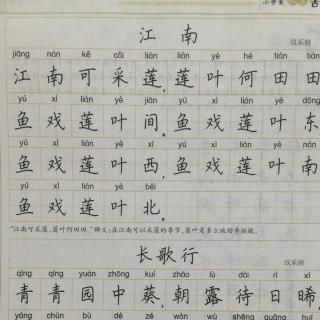 小学生
江南
汉乐府
jiāng nán kě cǎi lián lián yè hé tián tián
江南可采莲，莲叶何田田
yú xì lián yè jiān yú xì lián yè dōng
鱼戏莲叶间。鱼戏莲叶东
yú xì lián yè xī yú xì lián yè nán
鱼戏莲叶西，鱼戏莲叶南
yú xì lián yè běi
鱼戏莲叶北。
"江南可采莲，莲叶何田田。"释义：在江南可以采莲的季节，莲叶是多么地劲秀挺拔。
长歌行
汉乐府
qīng qīng yuán zhōng kuí zhāo lù dài rì xī
青青园中葵，朝露待日晞
yáng chūn bù dé zé wàn wù shēng guāng